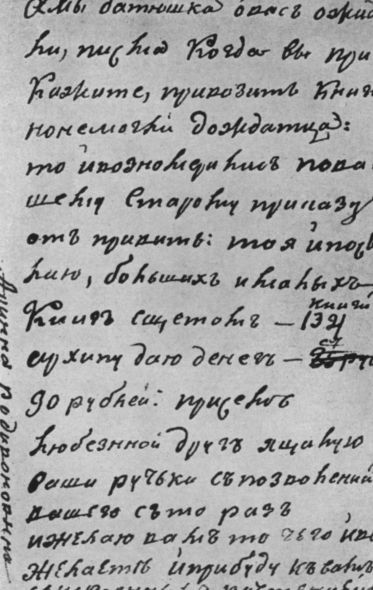 Амы батюшка ...васъ ожид
ли, письма когда вы при
кажите, привозить книг
нонемоглй дождатца:
то йвознамерились пова
шему старому приказу
отъправить: то я йпосы
лаю, большихъ ималыхъ
книгъ сщетомъ — 134 книгй
архипу даю денегъ —
90 рублей: присемъ
любезнной другъ яцалую
ваши ручьки съпозволений
вашего съто разъ
ижелаю вамъ то чего йвы
желаете йприбуду къвамъ
Арина Родивоновна